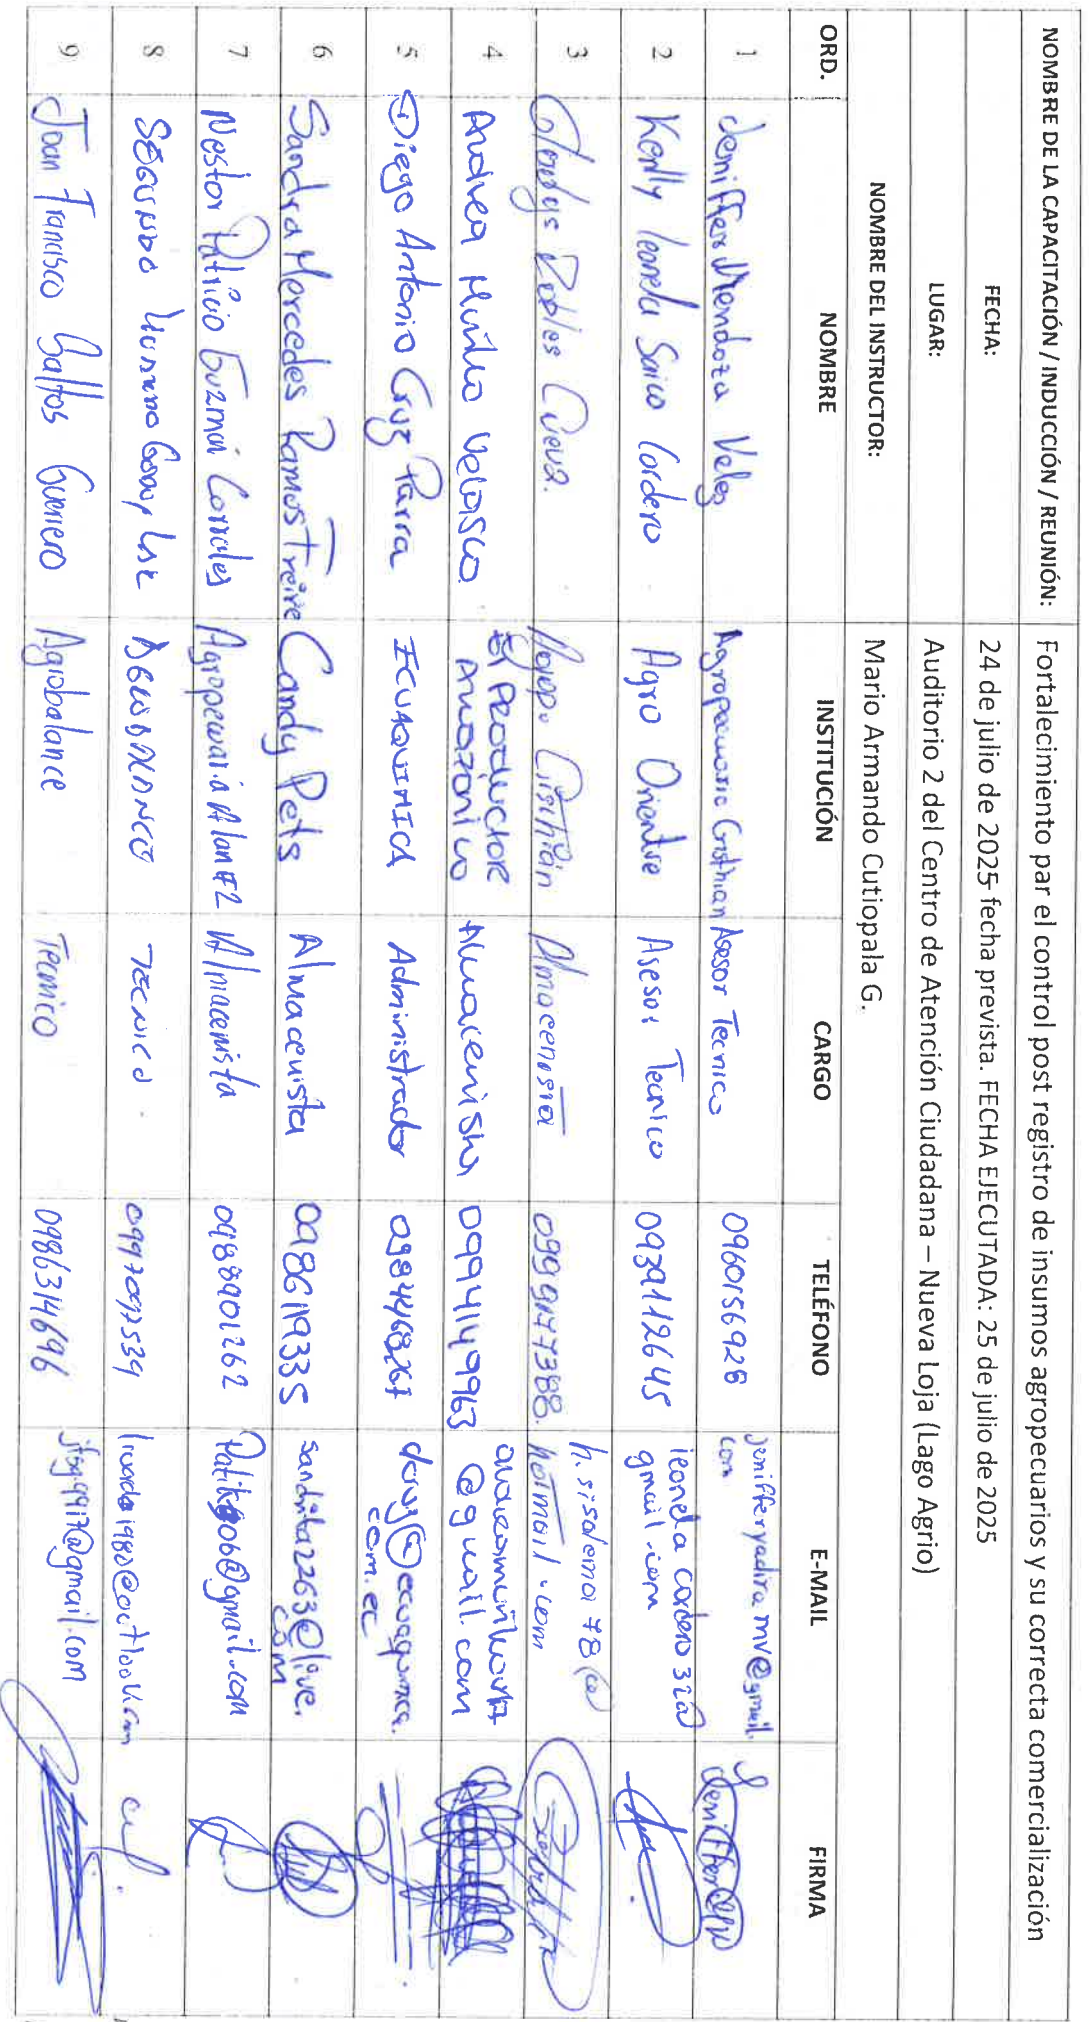 NOMBRE DE LA CAPACITACIÓN / INDUCCIÓN / REUNIÓN: Fortalecimiento par el control post registro de insumos agropecuarios y su correcta comercialización
FECHA: 24 de julio de 2025 fecha prevista. FECHA EJECUTADA: 25 de julio de 2025
LUGAR: Auditorio 2 del Centro de Atención Ciudadana – Nueva Loja (Lago Agrio)
NOMBRE DEL INSTRUCTOR: Mario Armando Cutiopala G.
ORD. NOMBRE INSTITUCIÓN CARGO TELÉFONO E-MAIL FIRMA
1 Jeniffer Mendoza Velez Agropecuario Cristhian Asesor Tecnico 0960156928 jenifferyadiramv@gmail.
com
2 Kerlly leonela Saico Cordero Agro Oriente Asesor Tecnico 0939112645 leonela cordero 32@
gmail.com
3 Gladys Robles Cueva. Cristhian Almacenista 0999177388 h.sisalema78@
hotmail.com
4 Andrea Murillo Velasco El Productor
Amazonico Almacenista 0994149963
@gmail.com
5 Diego Antonio Cruz Parra ECUAQUIMICA Administrador 0984468267 dcruz@ecuaquimica.
com.ec
6 Sandra Mercedes Ramos Freire Candy Pets Almacenista 0986119335 sandrita2263@live.
com
7 Nestor Patricio Guzmán Corrales Agropecuaria Alan #2 Almacenista 0988901262 Patikgob@gmail.com
8 SEGUNDO TECNICO 0997092539
9 Joan Francisco Gallos Guerrero Agrobalance Tecnico 0986314696 jfsg9917@gmail.com